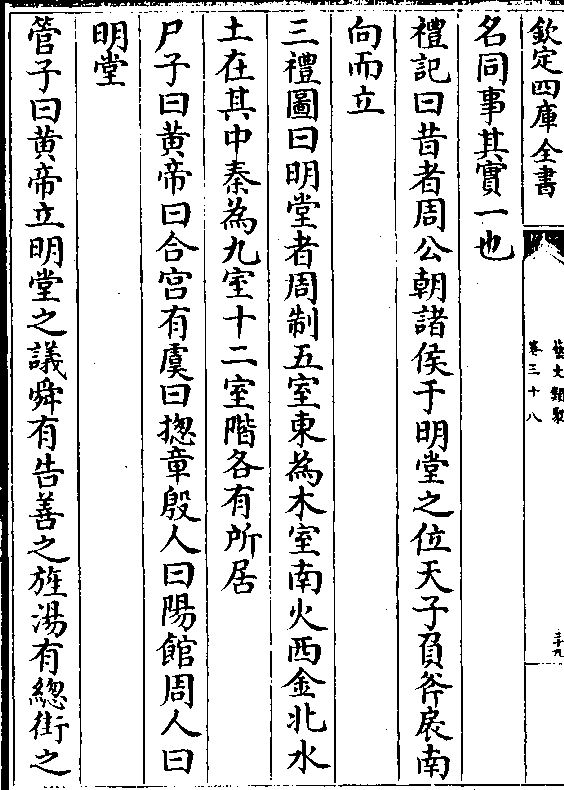 欽定四庫全書
藝文類聚
卷三十八
三十九
名同事其實一也
禮記曰昔者周公朝諸侯于明堂之位天子負斧扆南
向而立
三禮圖曰明堂者周制五室東為木室南火西金北水
土在其中秦為九室十二室階各有所居
尸子曰黄帝曰合宫有虞曰揔章殷人曰陽館周人曰
明堂
管子曰黄帝立明堂之議舜有告善之旌湯有總街之